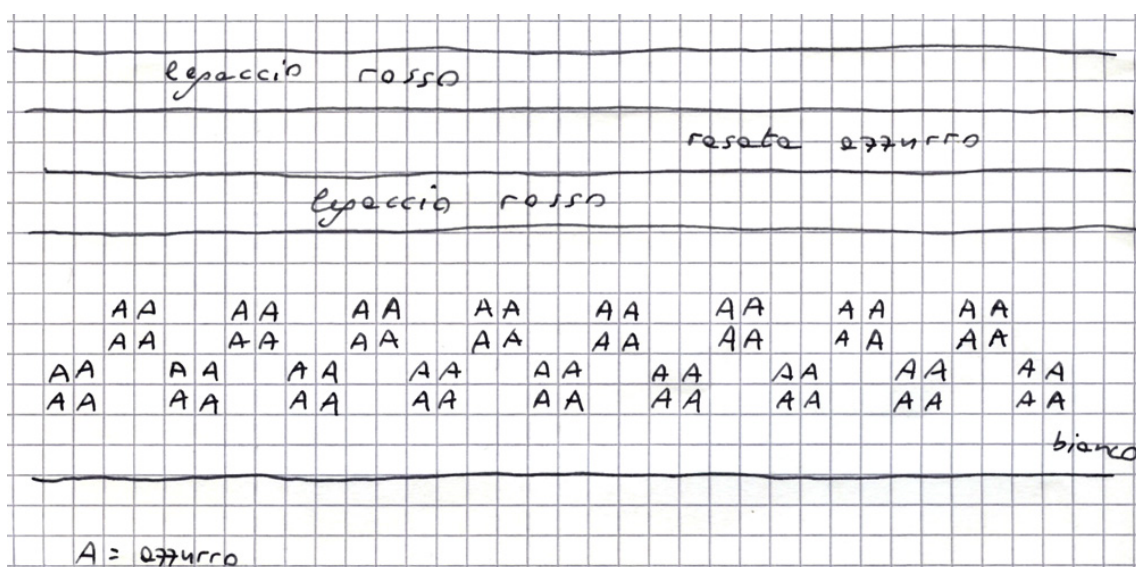 legaccio rosso
rasata azzurro
legaccio rosso
AA AA AA AA AA AA AA AA
AA AA AA AA AA AA AA AA
AA AA AA AA AA AA AA AA AA
AA AA AA AA AA AA AA AA AA
bianco
A = azzurro